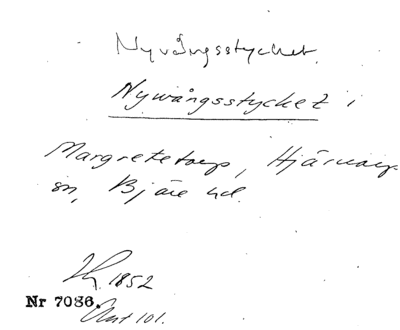 Nyvångsstycket.
Nywångsstycket i
Margretetorp, Hjärnarp
sn, Bjäre hd.
1852
Nr 7086.
Akt 101.